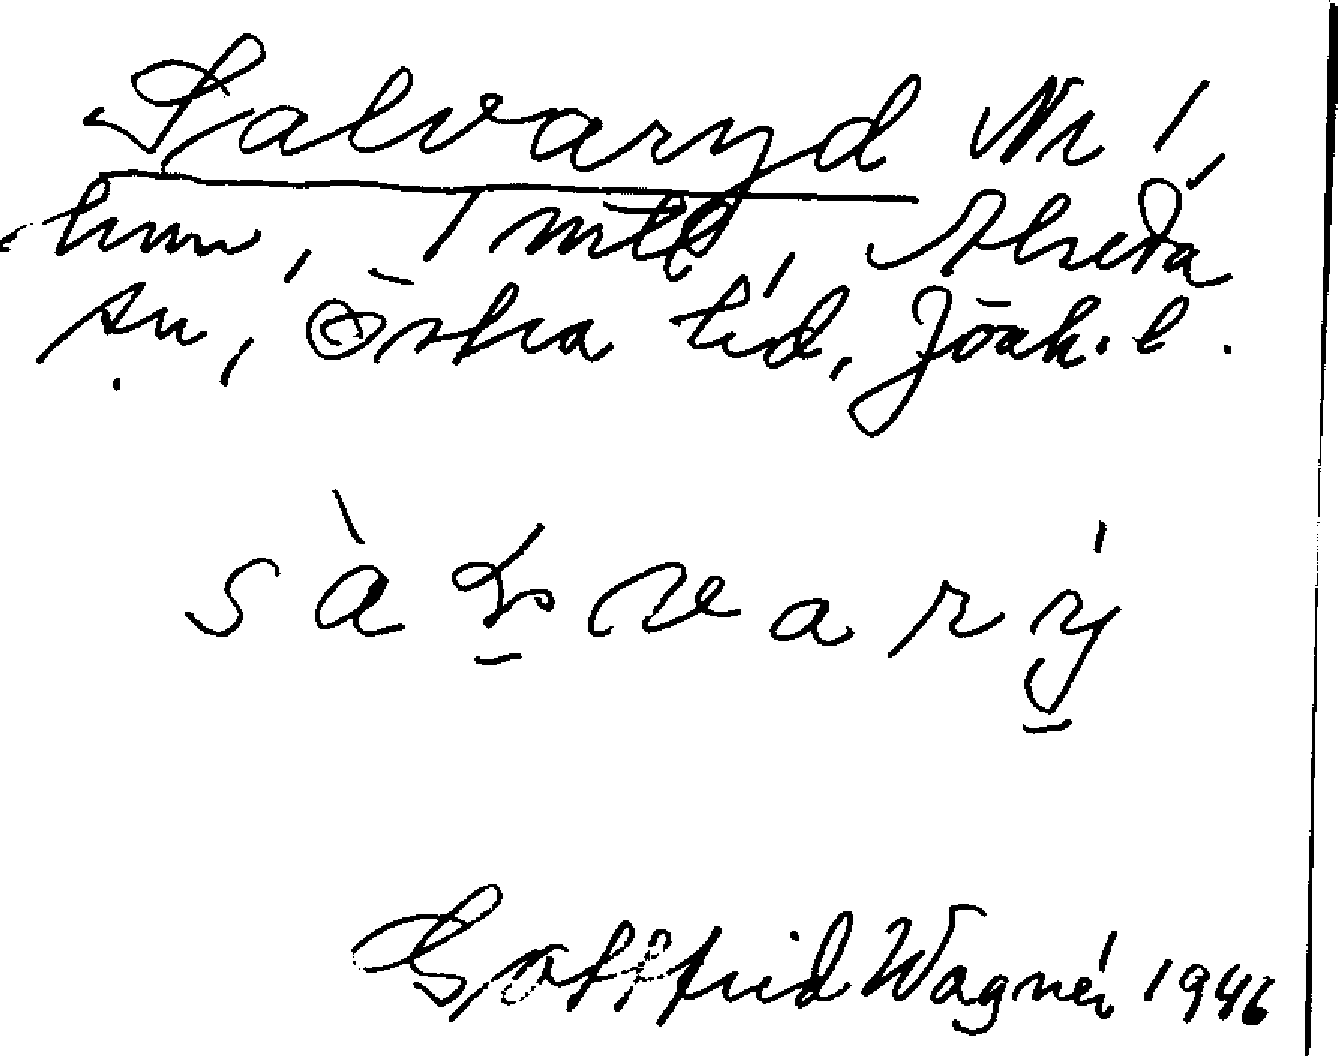 Salvaryd Nr 1,
hmn, 1 mtl, Alseda
sn, Östra hd, Jönk. l.
sàlvarý
Gottfrid Wagnér 1946